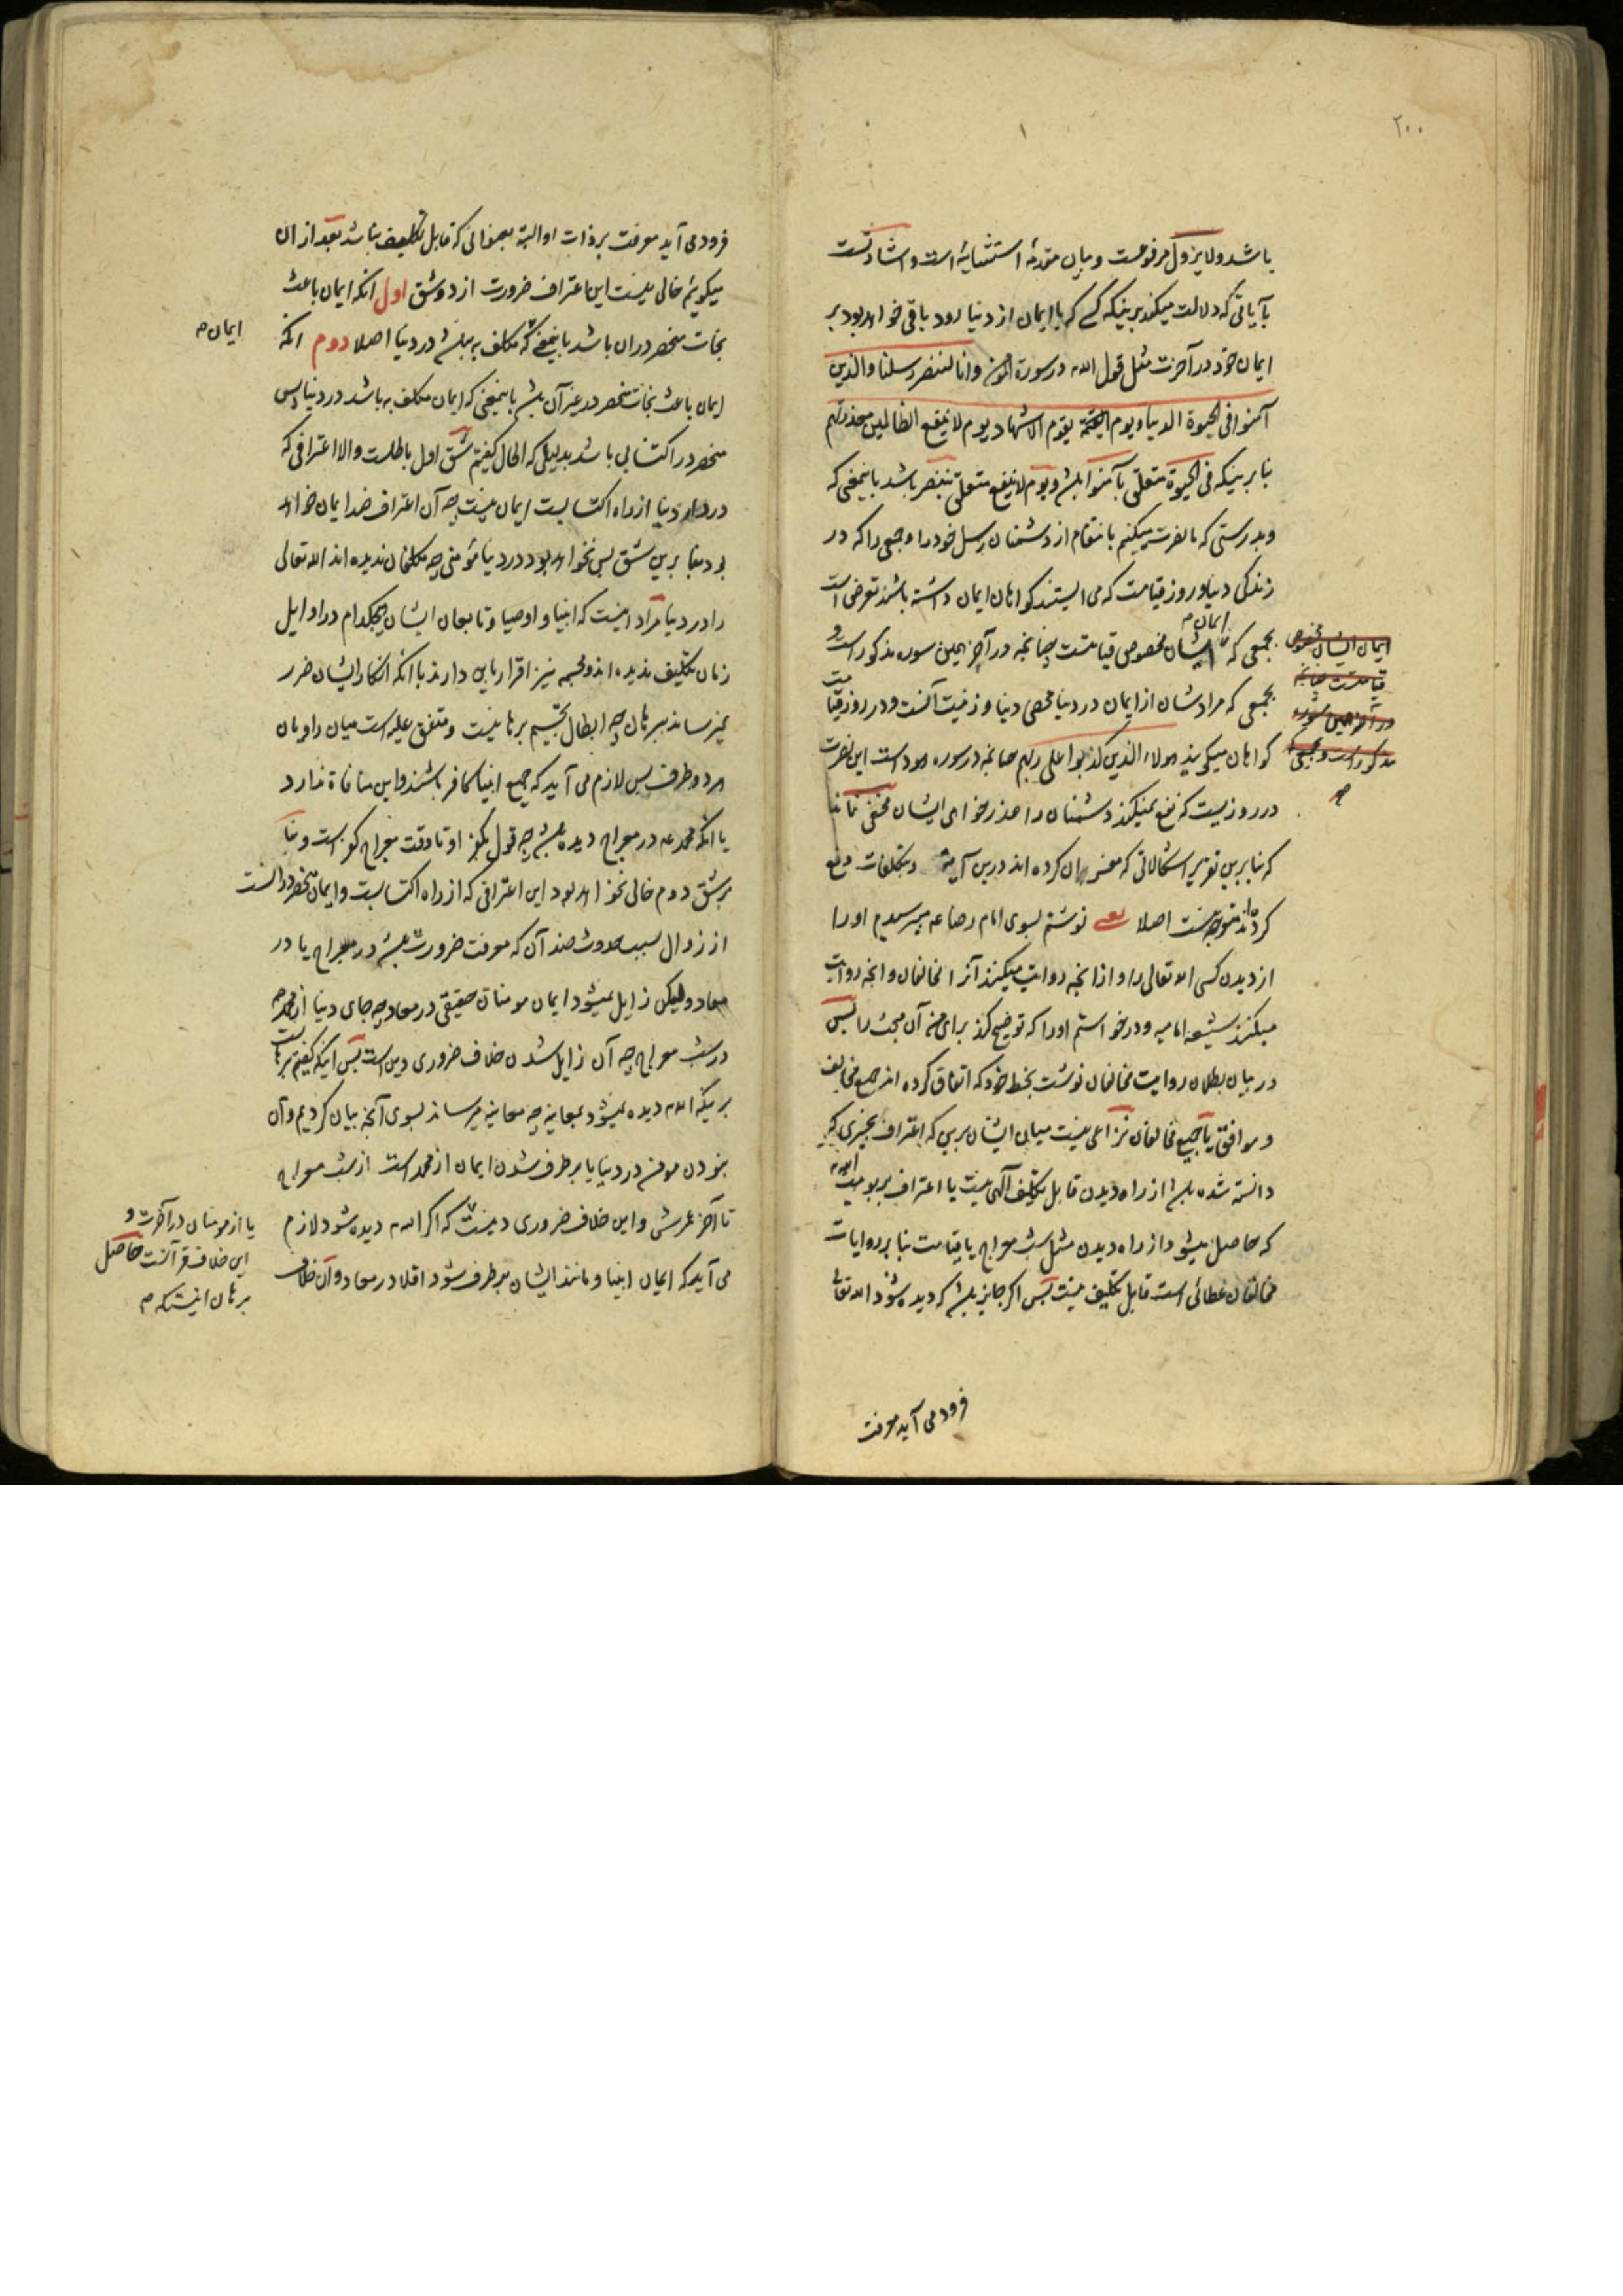 ۲۰۰
باشد ولا یزول مرفوعست و بیان مقدمهٔ استثنائیه است و اشارتست
بآیاتی که دلالت میکند برینکه کسی که با ایمان از دنیا رود باقی خواهد بود بر
ایمان خود در آخرت مثل قول الله در سورة المؤمن وانا لننصر رسلنا والذین
آمنوا فی الحیوة الدنیا ویوم یقوم الاشهاد یوم لا ینفع الظالمین معذرتهم
بنا برینکه فی الحیوة متعلق بآمنوا باشد و یوم لا ینفع متعلق بننصر باشد باینمعنی که
و بدرستی که ما نصرت میکنیم بانتقام از دشمنان رسل خود را و جمعی را که در
زندگی دنیا و روز قیامت که می ایستند گواهان ایمان داشته باشند تعرضی است
بجمعی که ایمان ایشان مخصوص قیامتست چنانچه در آخر همین سوره مذکور است و
بجمعی که مرادشان از ایمان در دنیا محض دنیا و زینت آنست و در روز قیامت
گواهان میگویند هولاء الذین کذبوا علی ربهم چنانچه در سوره هود است این نصرت
در روزیست که نفع نمیکند دشمنان را عذرخواهی ایشان مخفی نماند
که بنا برین تقریر اشکالاتی که مفسران کرده اند درین آیه و تکلفات دفع
کرده اند متوجه نیست اصلا یعنی نوشتم بسوی امام رضا عم میپرسیدم او را
از دیدن کسی الله تعالی را و از آنچه روایت میکنند آنرا مخالفان و آنچه روایت
میکنند شیعه امامیه و درخواستم او را که توضیح کند برای من آن مبحث را پس
در بیان بطلان روایت مخالفان نوشت بخط خود که اتفاق کرده اند جمیع مخالف
و موافق یا جمیع مخالفان نزاعی نیست میان ایشان برین که اعتراف بچیزی که
دانسته شده باشد از راه دیدن قابل تکلیف الهی نیست یا اعتراف بربوبیت الله
که حاصل میشود از راه دیدن مثل شب معراج یا قیامت بنا بر روایات
مخالفان عطائی است قابل تکلیف نیست پس اگر جایز باشد که دیده شود الله تعالی
ایمان ایشان مخصوص
قیامتست چنانچه
در آخر همین سوره
مذکور است و بجمعی که
فرود می آید معرفت
فرود می آید معرفت بر ذات او البته بعنوانی که قابل تکلیف نباشد بعد از ان
میگویم خالی نیست این اعتراف ضرورت از دو شق اول آنکه ایمان باعث
نجات منحصر در ان باشد باینمعنی که مکلف به نباشد در دنیا اصلا دوم آنکه
ایمان باعث نجات منحصر در غیر آن باشد باینمعنی که ایمان مکلف به باشد در دنیا پس
منحصر در اکتسابی باشد بدلیلی که الحال گفتیم شق اول باطلست والا اعترافی که
در دار دنیا از راه اکتسابست ایمان نیست چه آن اعتراف ضد ایمان خواهد
بود بنا برین شق پس نخواهد بود در دنیا مؤمنی چه مکلفان ندیده اند الله تعالی
را در دنیا مراد اینست که انبیا و اوصیا و تابعان ایشان هیچکدام در اوایل
زمان تکلیف ندیده اند و مجسمه نیز اقرار باین دارند با آنکه انکار ایشان ضرر
نمیرساند ببرهان چه ابطال تجسیم برهانیست و متفق علیه است میان راویان
هر دو طرف پس لازم می آید که جمیع انبیا کافر باشند و این منافاة ندارد
با آنکه محمد عم در معراج دیده باشد چه قول بکفر او تا وقت معراج کفر است و بنا
بر شق دوم خالی نخواهد بود این اعترافی که از راه اکتسابست و ایمان منحصر در آنست
از زوال بسبب حدوث ضد آن که معرفت ضرورت باشد در معراج یا در
معاد ولیکن زایل نمیشود ایمان مومنان حقیقی در معاد چه جای دنیا از محمد
در شب معراج چه آن زایل شدن خلاف ضروری دین است پس اینکه گفتیم برهانست
برینکه الله دیده نمیشود بمعاینه چه معاینه میرساند بسوی آنچه بیان کردیم و آن
نبودن مومن در دنیا یا برطرف شدن ایمان از محمد است از شب معراج
تا آخر عمرش و این خلاف ضروری دینست که اگر الله دیده شود لازم
می آید که ایمان انبیا و مانند ایشان برطرف شود اقلا در معاد و آن خلاف
ایمان
یا از مومنان در آخرت و
این خلاف قرآنست حاصل
برهان اینست که